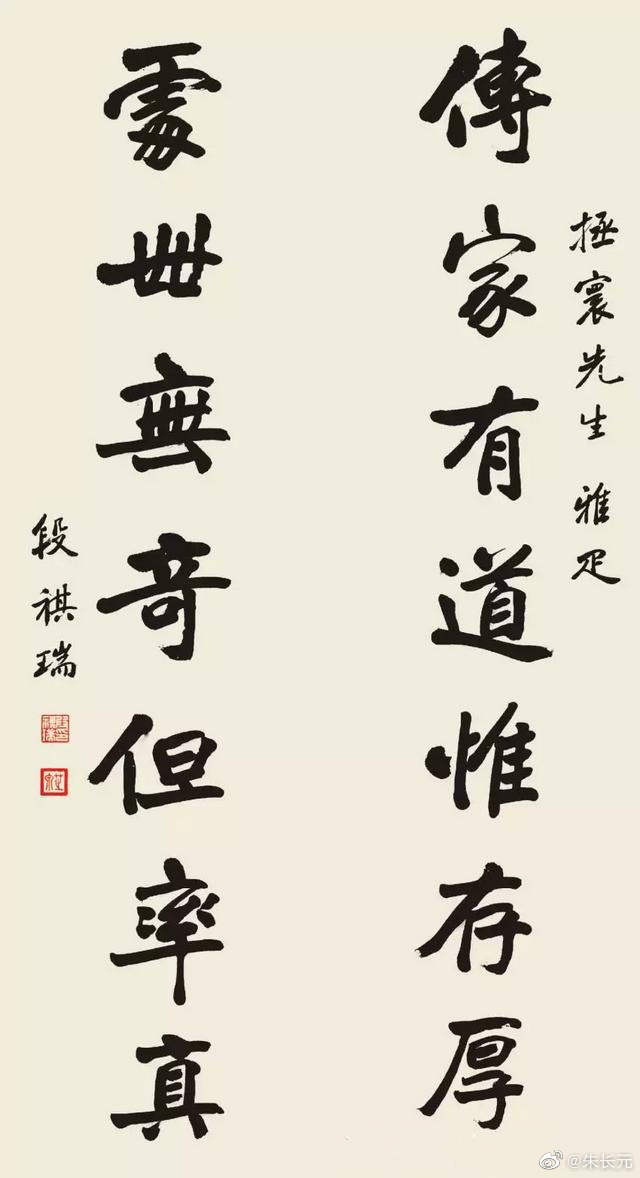 拯寰先生 雅正
傳家有道惟存厚
處世無奇但率真
段祺瑞
@朱长元